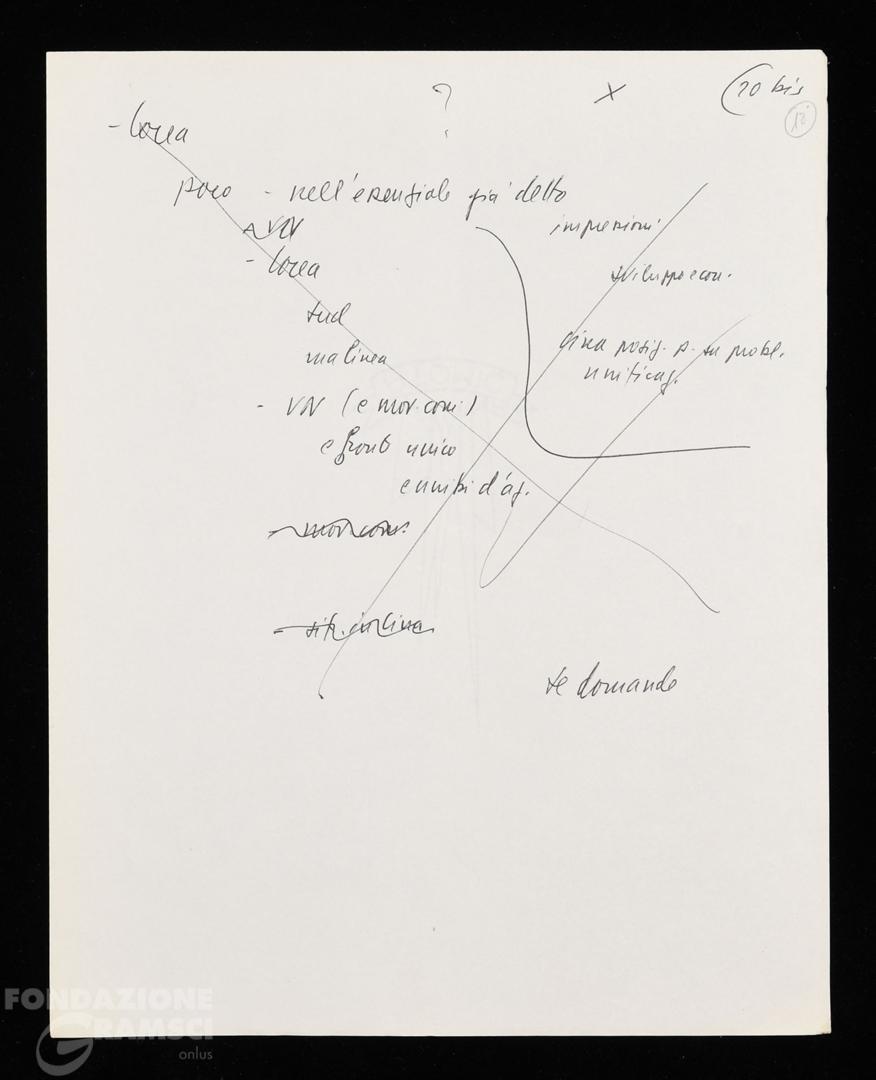 ? × (10 bis
12
- Corea
poco - nell'essenziale già detto
A VN
- Corea
sud
ma linea
- VN (e mov. com.)
e fronte unico
e unità d'az.
- mov. com.
- sit. in Cina
impressioni
sviluppo econ.
Cina posiz. p. su probl.
unificaz.
se domande
FONDAZIONE
GRAMSCI
onlus